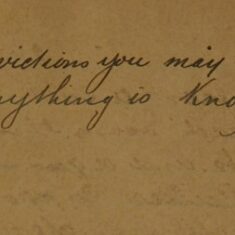 victions you may
nything is Kno